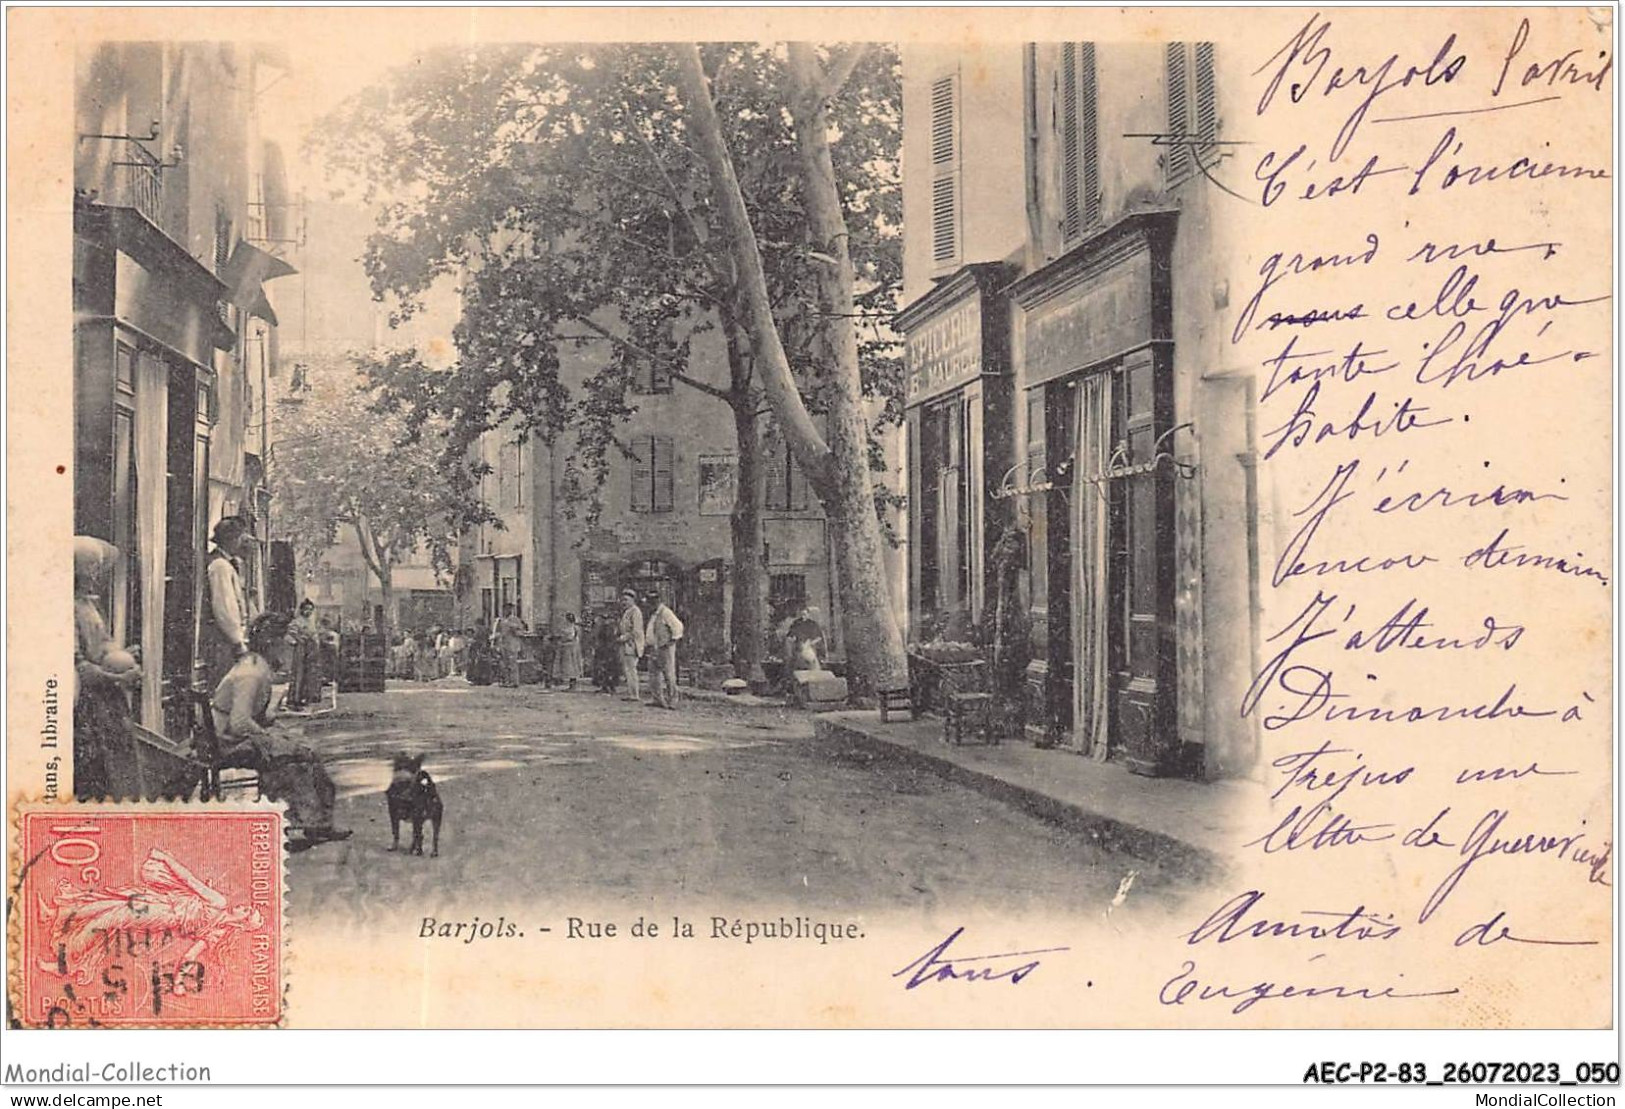 Barjols avril
C'est l'ancienne
grand rue,
nous celle que
tante
habite.
J'écrirai
encor demain.
J'attends
Dimanche à
Fréjus une
lettre de
Amitiés de
tous.
Eugénie
EPICERIE
Bd MAUREL
tans, libraire.
10c
REPUBLIQUE FRANÇAISE
POSTES
AVRIL
04
Barjols. - Rue de la République.
Mondial-Collection
AEC-P2-83_26072023_050
delcampe.net
MondialCollection